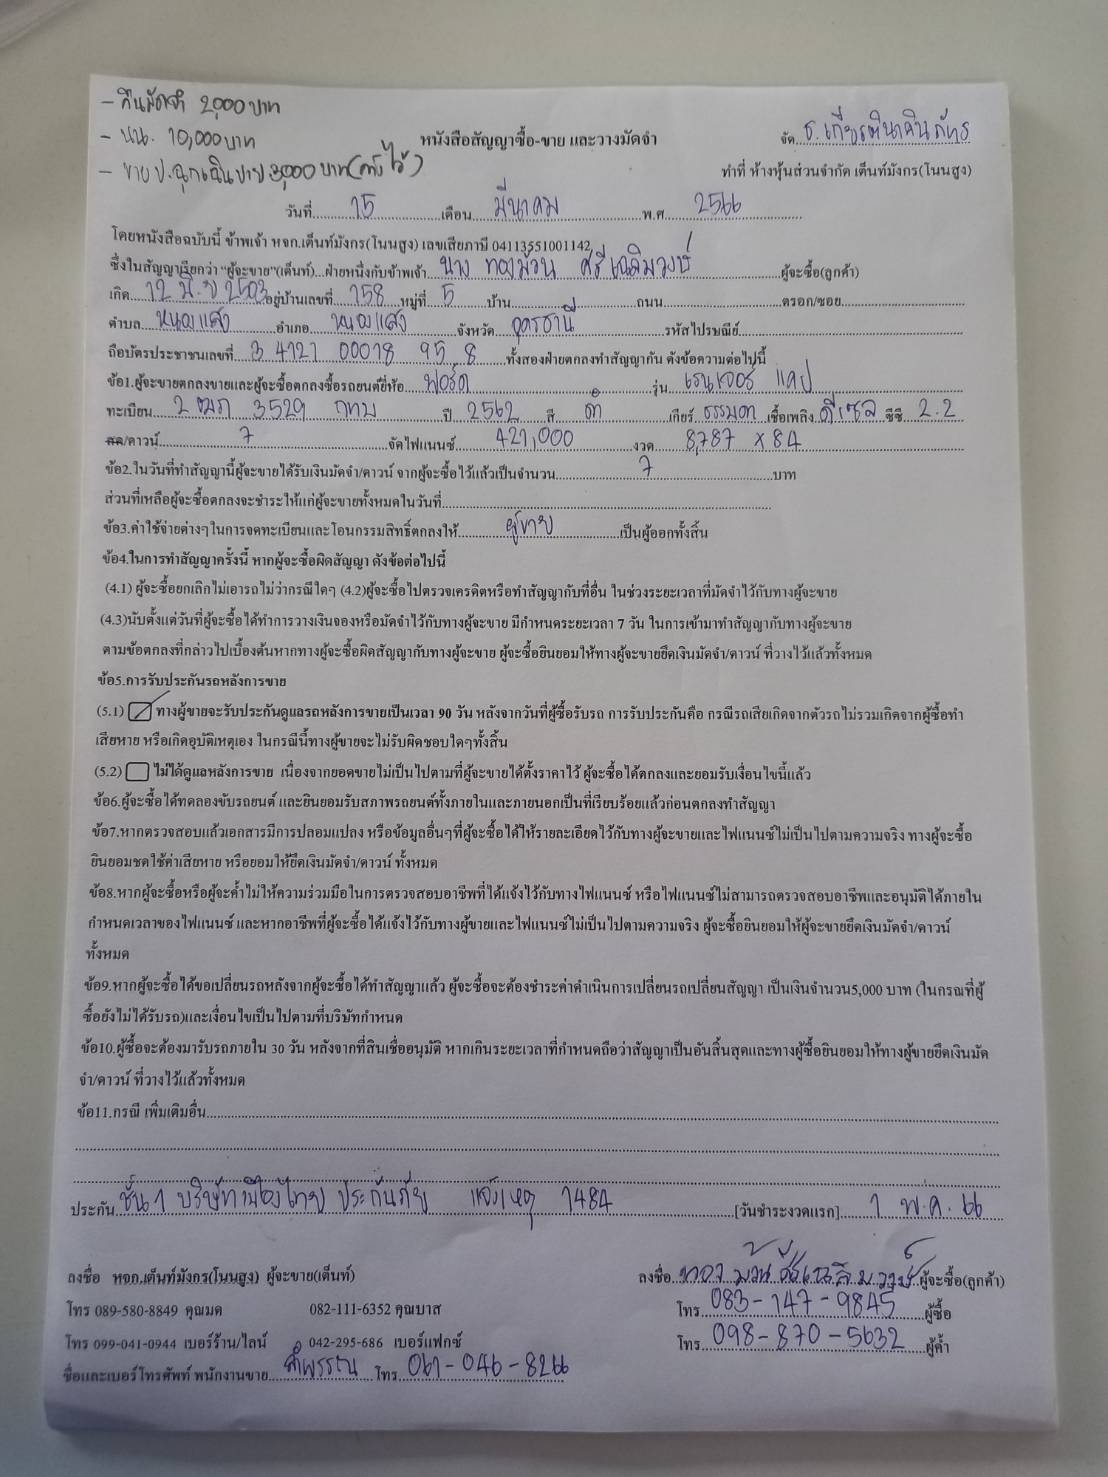 - คืนมัดจำ 2,000 บาท
- นน. 10,000 บาท
หนังสือสัญญาซื้อ-ขาย และวางมัดจำ
จัด ธ.เกียรตินาคินภัทร
- ขาย ป.ฉุกเฉินบาย 3,000 บาท (ครั้งไว้)
ทำที่ ห้างหุ้นส่วนจำกัด เต็นท์มังกร(โนนสูง)
วันที่ 15 เดือน มีนาคม พ.ศ 2566
โดยหนังสือฉบับนี้ ข้าพเจ้า หจก.เต็นท์มังกร(โนนสูง) เลขเสียภาษี 04113551001142
ซึ่งในสัญญาเรียกว่า "ผู้จะขาย"(เต็นท์)...ฝ่ายหนึ่งกับข้าพเจ้า นาง ทองม้วน ศรีเฉลิมวงษ์ ผู้จะซื้อ(ลูกค้า)
เกิด 12 มิ.ย 2503 อยู่บ้านเลขที่ 158 หมู่ที่ 5 บ้าน ถนน ตรอก/ซอย
ตำบล หนองแสง อำเภอ หนองแสง จังหวัด อุดรธานี รหัสไปรษณีย์
ถือบัตรประชาชนเลขที่ 3 4121 00018 95 8 ทั้งสองฝ่ายตกลงทำสัญญากัน ดังข้อความต่อไปนี้
ข้อ1.ผู้จะขายตกลงขายและผู้จะซื้อตกลงซื้อรถยนต์ยี่ห้อ ฟอร์ด รุ่น เรนเจอร์ แคป
ทะเบียน 2 ฒภ 3529 กทม ปี 2562 สี ดำ เกียร์ ธรรมดา เชื้อเพลิง ดีเซล ซีซี 2.2
สด/ดาวน์ 7 จัดไฟแนนซ์ 421,000 งวด 8,787 x 84
ข้อ2.ในวันที่ทำสัญญานี้ผู้จะขายได้รับเงินมัดจำ/ดาวน์ จากผู้จะซื้อไว้แล้วเป็นจำนวน 7 บาท
ส่วนที่เหลือผู้จะซื้อตกลงจะชำระให้แก่ผู้จะขายทั้งหมดในวันที่
ข้อ3.ค่าใช้จ่ายต่างๆในการจดทะเบียนและโอนกรรมสิทธิ์ตกลงให้ ผู้ขาย เป็นผู้ออกทั้งสิ้น
ข้อ4.ในการทำสัญญาครั้งนี้ หากผู้จะซื้อผิดสัญญา ดังข้อต่อไปนี้
(4.1) ผู้จะซื้อยกเลิกไม่เอารถไม่ว่ากรณีใดๆ (4.2)ผู้จะซื้อไปตรวจเครดิตหรือทำสัญญากับที่อื่น ในช่วงระยะเวลาที่มัดจำไว้กับทางผู้จะขาย
(4.3)นับตั้งแต่วันที่ผู้จะซื้อได้ทำการวางเงินจองหรือมัดจำไว้กับทางผู้จะขาย มีกำหนดระยะเวลา 7 วัน ในการเข้ามาทำสัญญากับทางผู้จะขาย
ตามข้อตกลงที่กล่าวไปเบื้องต้นหากทางผู้จะซื้อผิดสัญญากับทางผู้จะขาย ผู้จะซื้อยินยอมให้ทางผู้จะขายยึดเงินมัดจำ/ดาวน์ ที่วางไว้แล้วทั้งหมด
ข้อ5.การรับประกันรถหลังการขาย
(5.1) ทางผู้ขายจะรับประกันดูแลรถหลังการขายเป็นเวลา 90 วัน หลังจากวันที่ผู้ซื้อรับรถ การรับประกันคือ กรณีรถเสียเกิดจากตัวรถ ไม่รวมเกิดจากผู้ซื้อทำ
เสียหาย หรือเกิดอุบัติเหตุเอง ในกรณีนี้ทางผู้ขายจะไม่รับผิดชอบใดๆทั้งสิ้น
(5.2) ไม่ได้ดูแลหลังการขาย เนื่องจากยอดขายไม่เป็นไปตามที่ผู้จะขายได้ตั้งราคาไว้ ผู้จะซื้อได้ตกลงและยอมรับเงื่อนไขนี้แล้ว
ข้อ6.ผู้จะซื้อได้ทดลองขับรถยนต์ และยินยอมรับสภาพรถยนต์ทั้งภายในและภายนอกเป็นที่เรียบร้อยแล้วก่อนตกลงทำสัญญา
ข้อ7.หากตรวจสอบแล้วเอกสารมีการปลอมแปลง หรือข้อมูลอื่นๆที่ผู้จะซื้อได้ให้รายละเอียดไว้กับทางผู้จะขายและไฟแนนซ์ไม่เป็นไปตามความจริง ทางผู้จะซื้อ
ยินยอมชดใช้ค่าเสียหาย หรือยอมให้ยึดเงินมัดจำ/ดาวน์ ทั้งหมด
ข้อ8.หากผู้จะซื้อหรือผู้จะค้ำไม่ให้ความร่วมมือในการตรวจสอบอาชีพที่ได้แจ้งไว้กับทางไฟแนนซ์ หรือไฟแนนซ์ไม่สามารถตรวจสอบอาชีพและอนุมัติได้ภายใน
กำหนดเวลาของไฟแนนซ์ และหากอาชีพที่ผู้จะซื้อได้แจ้งไว้กับทางผู้ขายและไฟแนนซ์ไม่เป็นไปตามความจริง ผู้จะซื้อยินยอมให้ผู้จะขายยึดเงินมัดจำ/ดาวน์
ทั้งหมด
ข้อ9.หากผู้จะซื้อได้ขอเปลี่ยนรถหลังจากผู้จะซื้อได้ทำสัญญาแล้ว ผู้จะซื้อจะต้องชำระค่าดำเนินการเปลี่ยนรถเปลี่ยนสัญญา เป็นเงินจำนวน5,000 บาท (ในกรณที่ผู้
ซื้อยังไม่ได้รับรถ)และเงื่อนไขเป็นไปตามที่บริษัทกำหนด
ข้อ10.ผู้ซื้อจะต้องมารับรถภายใน 30 วัน หลังจากที่สินเชื่ออนุมัติ หากเกินระยะเวลาที่กำหนดถือว่าสัญญาเป็นอันสิ้นสุดและทางผู้ซื้อยินยอมให้ทางผู้ขายยึดเงินมัด
จำ/ดาวน์ ที่วางไว้แล้วทั้งหมด
ข้อ11.กรณี เพิ่มเติมอื่น
ประกัน ชั้น 1 บริษัทเมืองไทย ประกันภัย แจ้งเหตุ 1484 [วันชำระงวดแรก] 1 พ.ค. 66
ลงชื่อ หจก.เต็นท์มังกร(โนนสูง) ผู้จะขาย(เต็นท์) ลงชื่อ ทองม้วน ศรีเฉลิมวงษ์ ผู้จะซื้อ(ลูกค้า)
โทร 089-580-8849 คุณมด 082-111-6352 คุณบาส โทร 083-147-9845 ผู้ซื้อ
โทร 099-041-0944 เบอร์ร้าน/ไลน์ 042-295-686 เบอร์แฟกซ์ โทร 098-870-5632 ผู้ค้ำ
ชื่อและเบอร์โทรศัพท์ พนักงานขาย ลำพรรณ โทร 061-046-8266